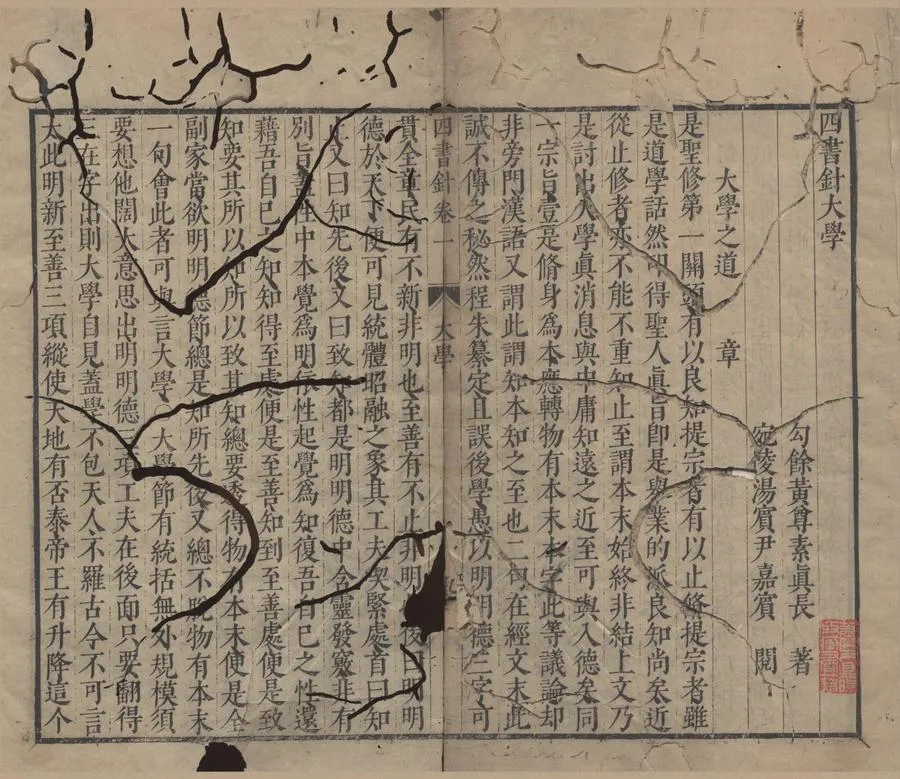 四書針大學
勾餘黃尊素眞長 著
宛陵湯賓尹嘉賓 閱
大學之道 章
是聖修第一關頭有以良知提宗者有以止脩提宗者雖
是道學話然卽得聖人眞旨卽是與業的派良知尚矣近
從止修者亦不能不重知止至謂本末始終非結上文乃
是討出大學眞消息與中庸知遠之近至可與入德矣同
一宗旨壹是脩身爲本應轉物有本末本字此等議論却
非旁門漢語又謂此謂知本知之至也二句在經文末此
誠不傳之秘然程朱纂定且誤後學愚以明明德三字可
四書針 卷一 大學
貫全章民有不新非明也至善有不止非明 後曰明明
德於天下便可見統體昭融之象其工夫喫緊處首曰知
止又曰知先後又曰致知都是明明德中含靈發竅非有
別旨蓋性中本覺爲明依性起覺爲知復吾自己之性還
藉吾自己之知知得至處便是至善知到至善處便是致
知要其所以知所以致其知總要透得物有本末便是全
副家當欲明明德節總是知所先後又總不脫物有本末
一句會此者可與言大學 大學節有統括無外規模須
要想他闊大意思出明明德三項工夫在後面只要翻得
三在字出則大學自見蓋學不包天人不羅古今不可言
大此明新至善三項縱使天地有否泰帝王有升降這个